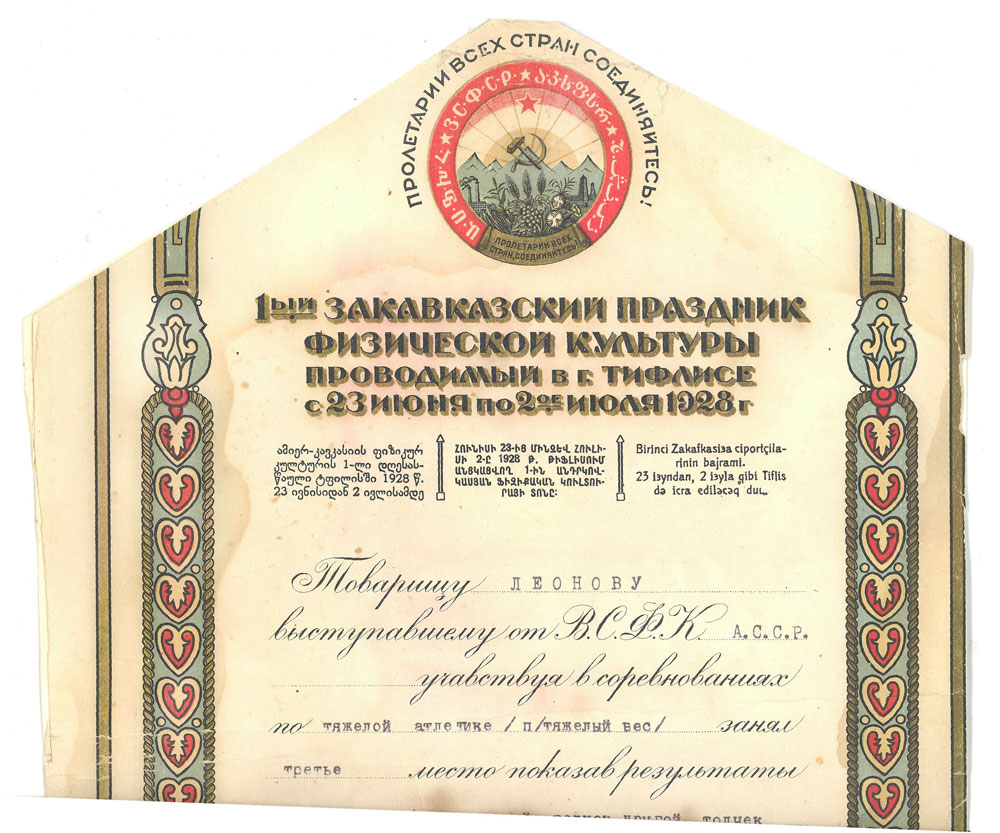 ПРОЛЕТАРИИ ВСЕХ СТРАН СОЕДИНЯЙТЕСЬ!
Ա·Ս·Ֆ·Խ·Հ ★ З·С·Ф·С·Р· ★ ა·ვ·ს·ფ·ს·რ·
ПРОЛЕТАРИИ ВСЕХ
СТРАН, СОЕДИНЯЙТЕСЬ!
1ЫЙ ЗАКАВКАЗСКИЙ ПРАЗДНИК
ФИЗИЧЕСКОЙ КУЛЬТУРЫ
ПРОВОДИМЫЙ В Г. ТИФЛИСЕ
С 23 ИЮНЯ ПО 2ОЕ ИЮЛЯ 1928 Г
ამიერ-კავკასიის ფიზიკურ
კულტურის 1-ლი დღესას-
წაული ტფილისში 1928 წ.
23 ივნისიდან 2 ივლისამდე
ՀՈՒՆԻՍԻ 23-ԻՑ ՄԻՆՉԵՎ ՀՈՒԼԻ-
ՍԻ 2-Ը 1928 Թ. ԹԻՖԼԻՍՈՒՄ
ԱՆՑԿԱՑՎՈՂ 1-ԻՆ ԱՆԴՐԿՈՎ-
ԿԱՍՅԱՆ ՖԻԶԻՔԱԿԱՆ ԿՈՒԼՏՈՒ-
ՐԱՅԻ ՏՈՆԸ:
Birinci Zakafkasiƨa ciportçila-
rinin bajrami.
23 iƨyndan, 2 iƨyla gibi Tiflis
də icra ediləcəq du..
Товарищу ЛЕОНОВУ
выступавшему от В.С.Ф.К. А.С.С.Р.
учавствуя в соревнованиях
по тяжелой атлетике /п/тяжелый вес/ занял
третье место показав результаты
другой толчек